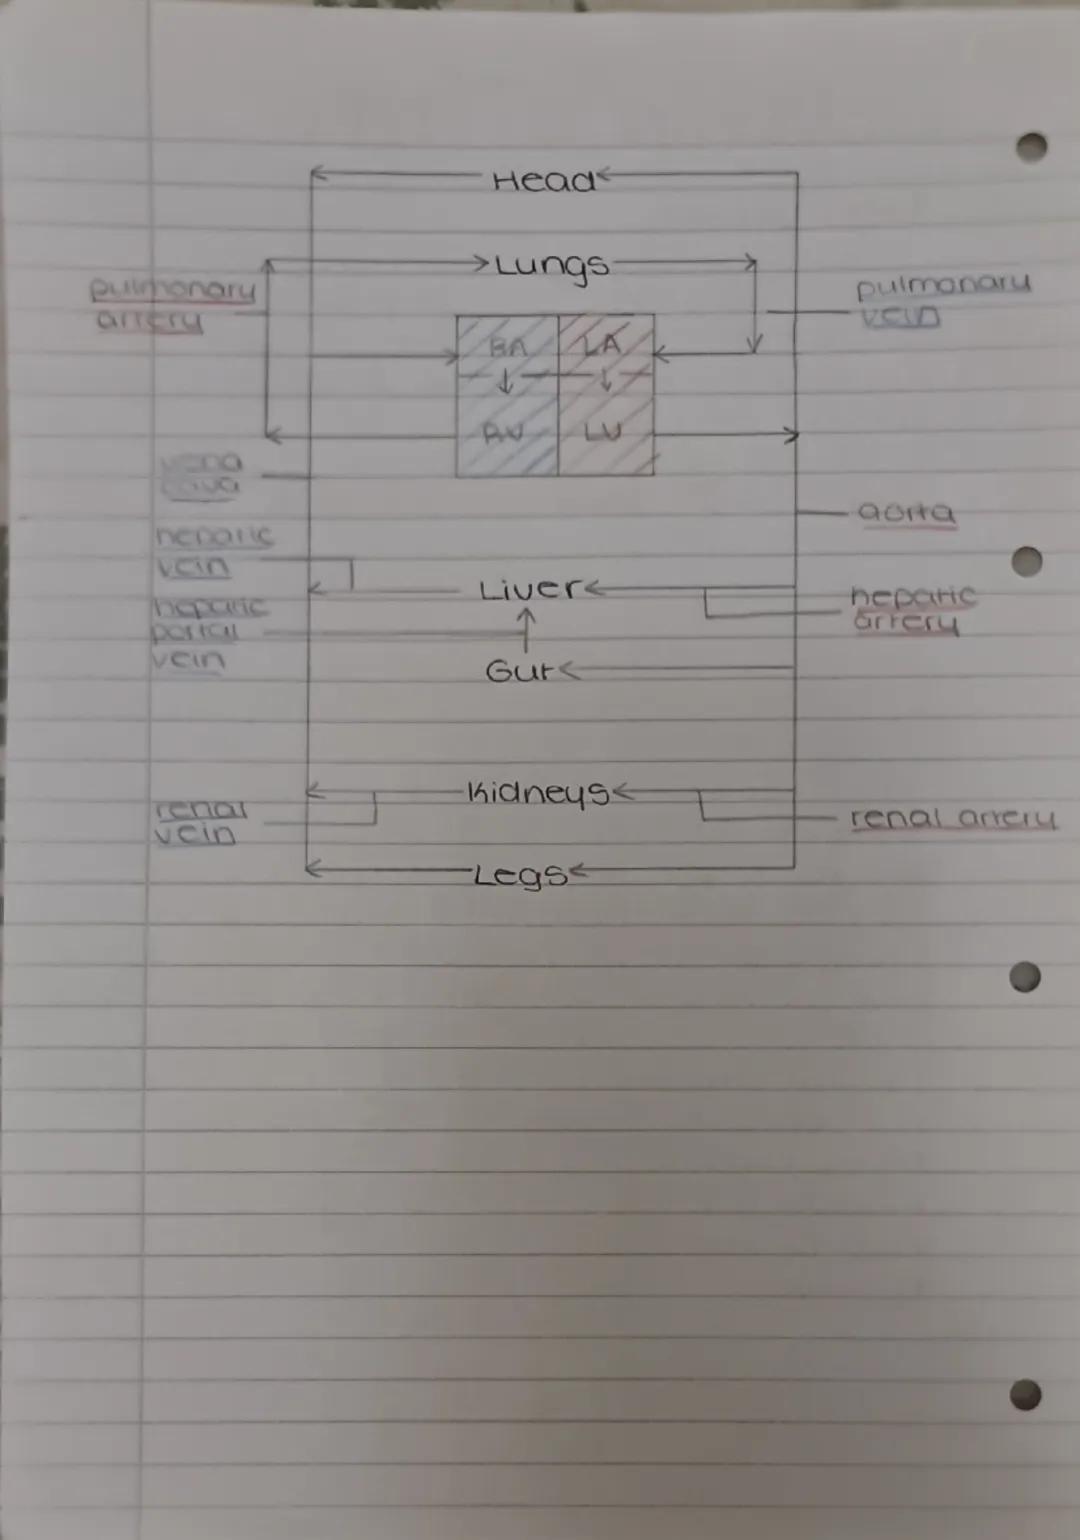 Head
Lungs
pulmonary
artery
pulmonary
vein
RA LA
RV LV
vena
cava
aorta
hepatic
vein
Liver
hepatic
artery
hepatic
portal
vein
Gut
Kidneys
renal
vein
renal artery
Legs